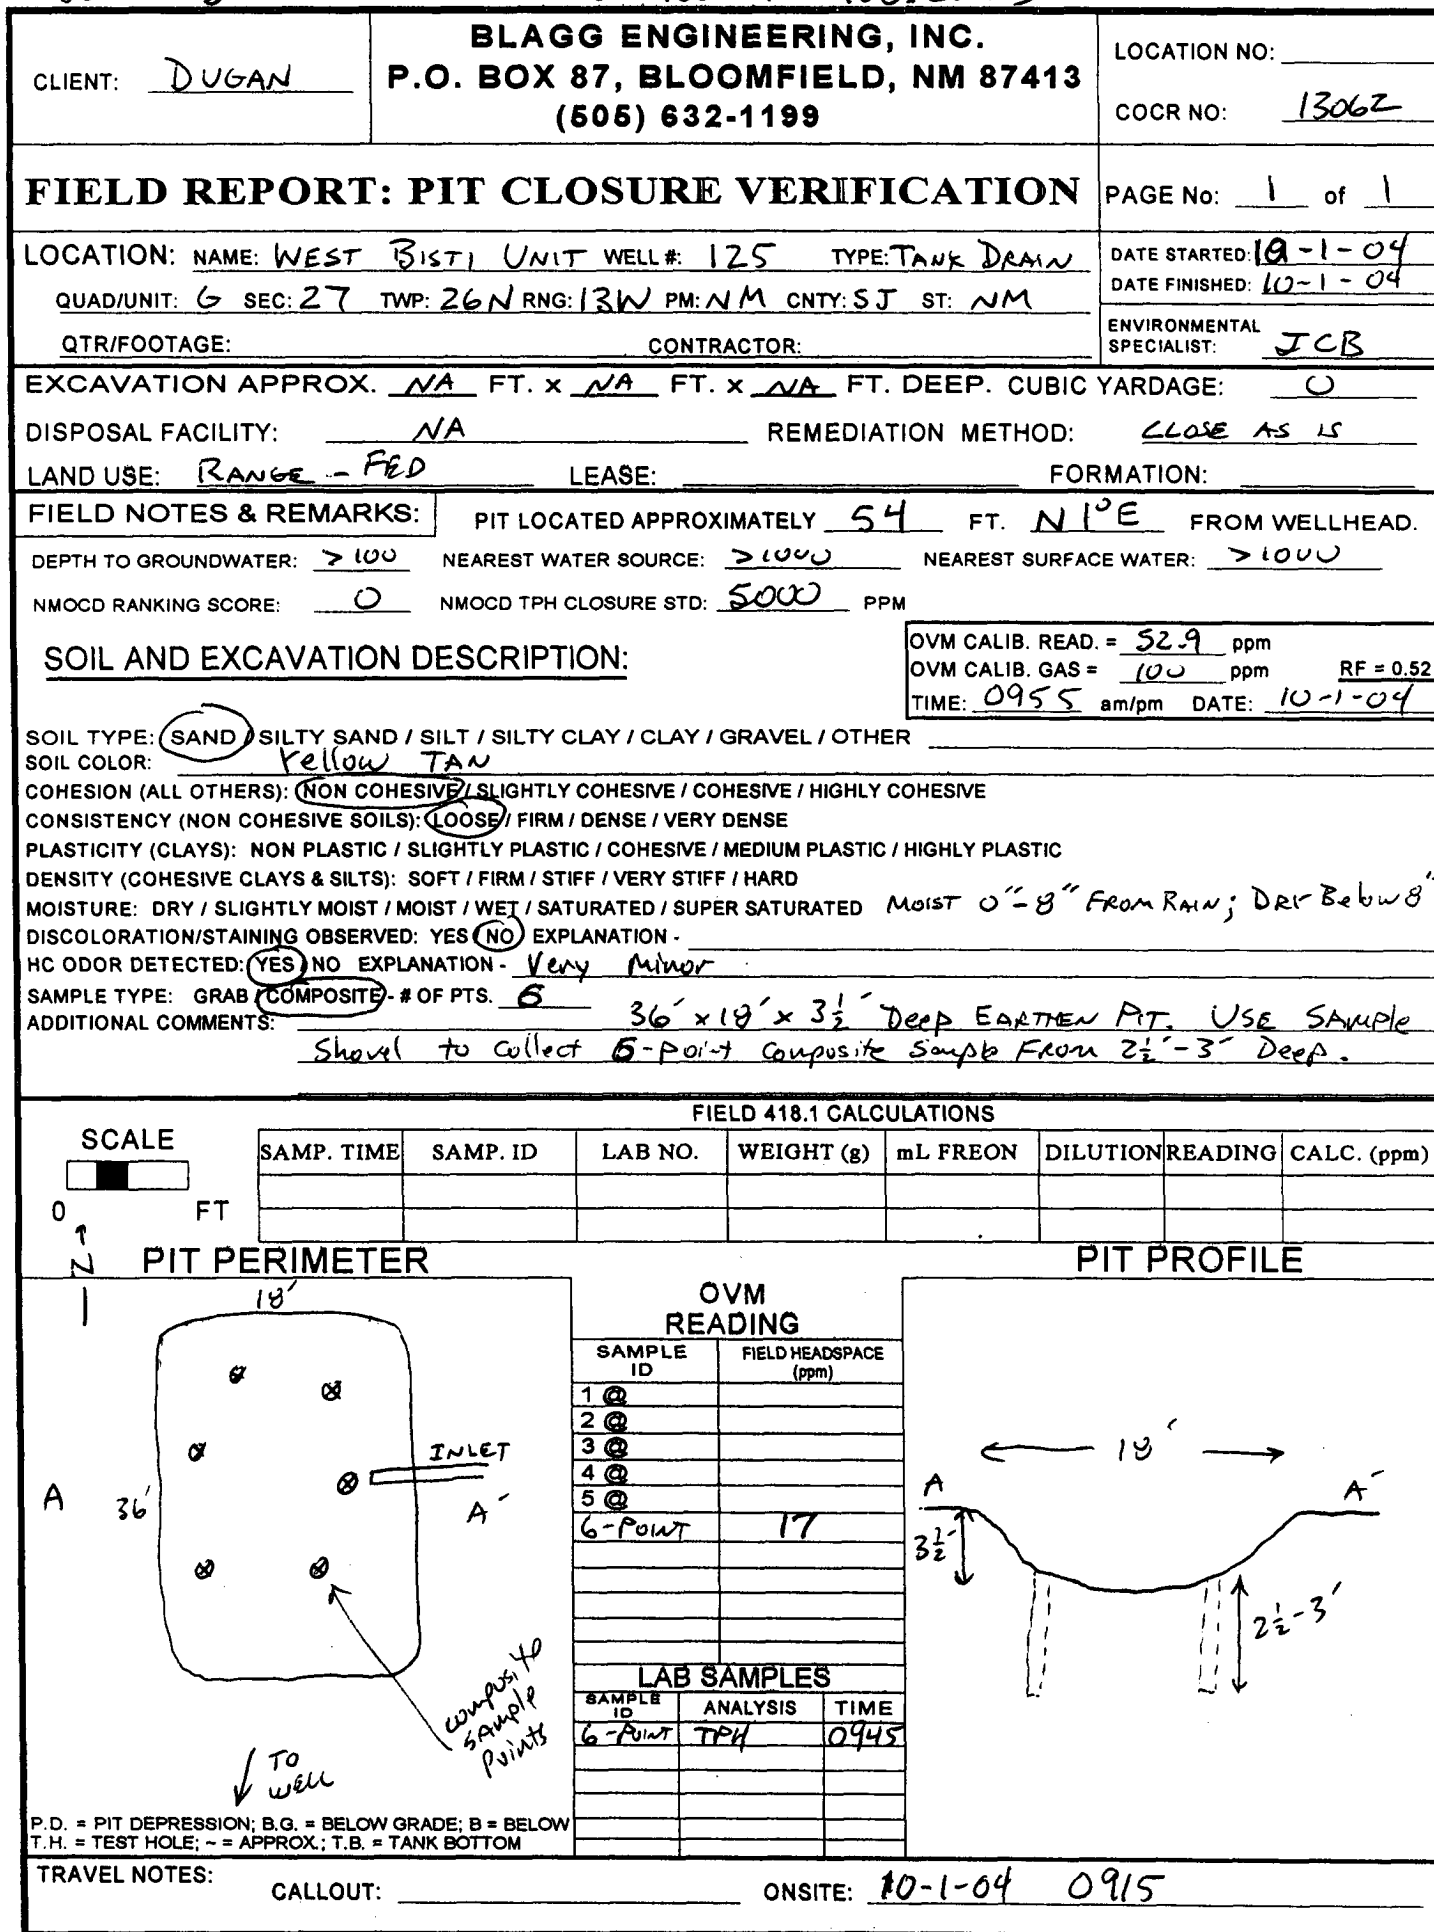 CLIENT: DUGAN
BLAGG ENGINEERING, INC.
P.O. BOX 87, BLOOMFIELD, NM 87413
(505) 632-1199
LOCATION NO:
COCR NO: 13062
FIELD REPORT: PIT CLOSURE VERIFICATION
PAGE No: 1 of 1
LOCATION: NAME: WEST BISTI UNIT WELL #: 125 TYPE: TANK DRAIN
QUAD/UNIT: G SEC: 27 TWP: 26N RNG: 13W PM: NM CNTY: SJ ST: NM
QTR/FOOTAGE: CONTRACTOR:
DATE STARTED: 10-1-04
DATE FINISHED: 10-1-04
ENVIRONMENTAL
SPECIALIST: JCB
EXCAVATION APPROX. NA FT. x NA FT. x NA FT. DEEP. CUBIC YARDAGE: 0
DISPOSAL FACILITY: NA REMEDIATION METHOD: CLOSE AS IS
LAND USE: RANGE - FED LEASE: FORMATION:
FIELD NOTES & REMARKS: PIT LOCATED APPROXIMATELY 54 FT. N1°E FROM WELLHEAD.
DEPTH TO GROUNDWATER: >100 NEAREST WATER SOURCE: >1000 NEAREST SURFACE WATER: >1000
NMOCD RANKING SCORE: 0 NMOCD TPH CLOSURE STD: 5000 PPM
SOIL AND EXCAVATION DESCRIPTION:
OVM CALIB. READ. = 52.9 ppm
OVM CALIB. GAS = 100 ppm RF = 0.52
TIME: 0955 am/pm DATE: 10-1-04
SOIL TYPE: SAND / SILTY SAND / SILT / SILTY CLAY / CLAY / GRAVEL / OTHER
SOIL COLOR: Yellow TAN
COHESION (ALL OTHERS): NON COHESIVE / SLIGHTLY COHESIVE / COHESIVE / HIGHLY COHESIVE
CONSISTENCY (NON COHESIVE SOILS): LOOSE / FIRM / DENSE / VERY DENSE
PLASTICITY (CLAYS): NON PLASTIC / SLIGHTLY PLASTIC / COHESIVE / MEDIUM PLASTIC / HIGHLY PLASTIC
DENSITY (COHESIVE CLAYS & SILTS): SOFT / FIRM / STIFF / VERY STIFF / HARD
MOISTURE: DRY / SLIGHTLY MOIST / MOIST / WET / SATURATED / SUPER SATURATED MOIST 0"-8" FROM RAIN; DRY Below 8"
DISCOLORATION/STAINING OBSERVED: YES NO EXPLANATION -
HC ODOR DETECTED: YES NO EXPLANATION - Very Minor
SAMPLE TYPE: GRAB / COMPOSITE - # OF PTS. 6
ADDITIONAL COMMENTS: 36' x 18' x 3½' Deep EARTHEN PIT. USE SAMPLE
Shovel to Collect 6-point Composite Sample FROM 2½'-3' Deep.
FIELD 418.1 CALCULATIONS
SCALE
0 FT
SAMP. TIME SAMP. ID LAB NO. WEIGHT (g) mL FREON DILUTION READING CALC. (ppm)
N
PIT PERIMETER
PIT PROFILE
18'
INLET
A 36' A'
composite
sample
points
TO
well
OVM
READING
SAMPLE
ID
FIELD HEADSPACE
(ppm)
1 @
2 @
3 @
4 @
5 @
6-POINT 17
LAB SAMPLES
SAMPLE
ID ANALYSIS TIME
6-POINT TPH 0945
18'
A A'
3½'
2½-3'
P.D. = PIT DEPRESSION; B.G. = BELOW GRADE; B = BELOW
T.H. = TEST HOLE; ~ = APPROX.; T.B. = TANK BOTTOM
TRAVEL NOTES: CALLOUT: ONSITE: 10-1-04 0915